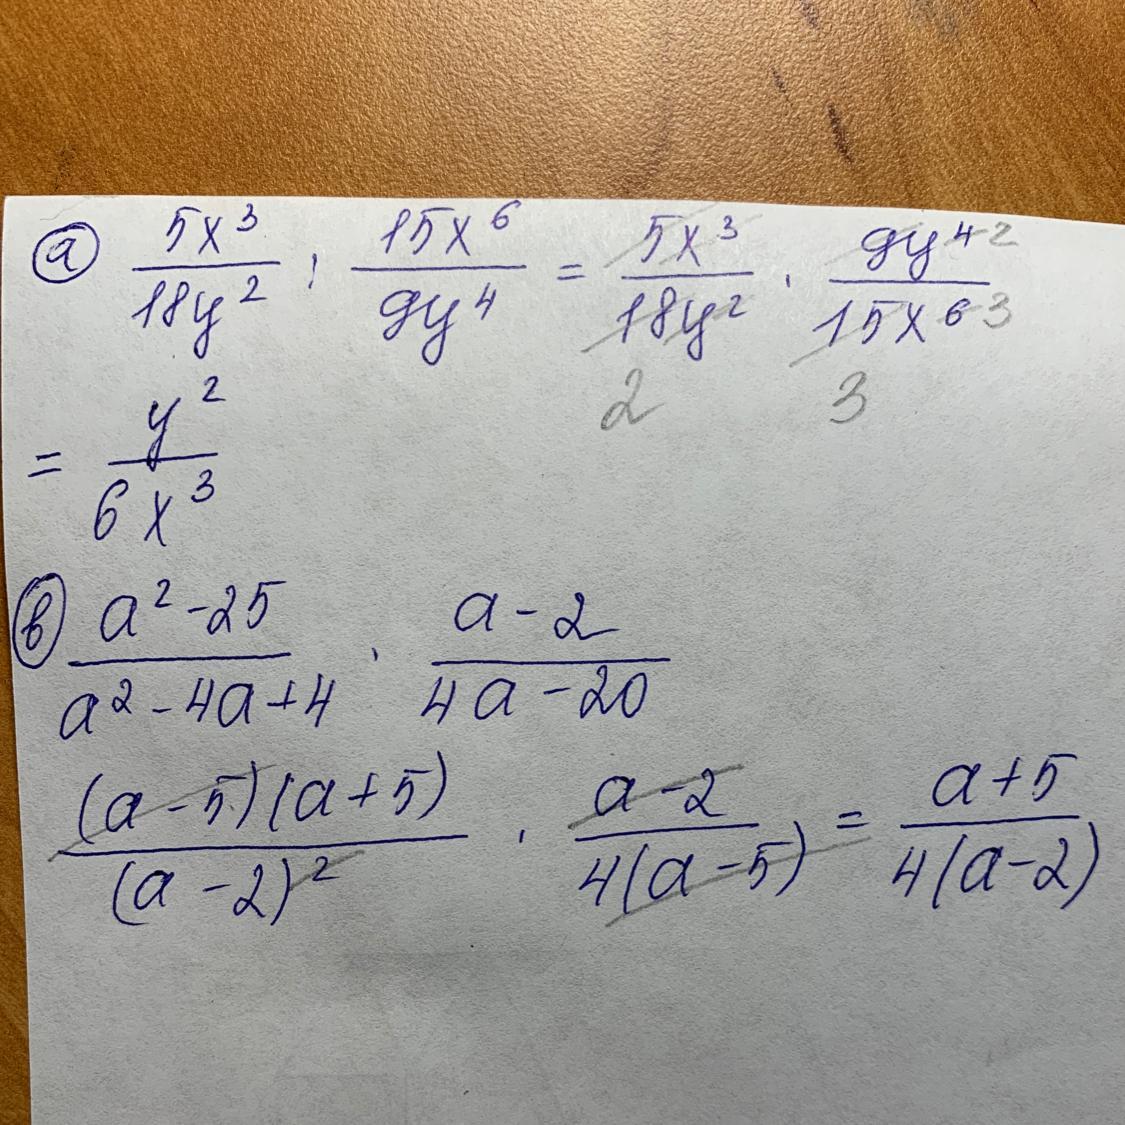 а) 5x³/18y² : 15x⁶/9y⁴ = 5x³/18y² · 9y⁴ 2/15x⁶ 3
2 3
= y²/6x³
в) a²-25/a²-4a+4 · a-2/4a-20
(a-5)(a+5)/(a-2)² · a-2/4(a-5) = a+5/4(a-2)